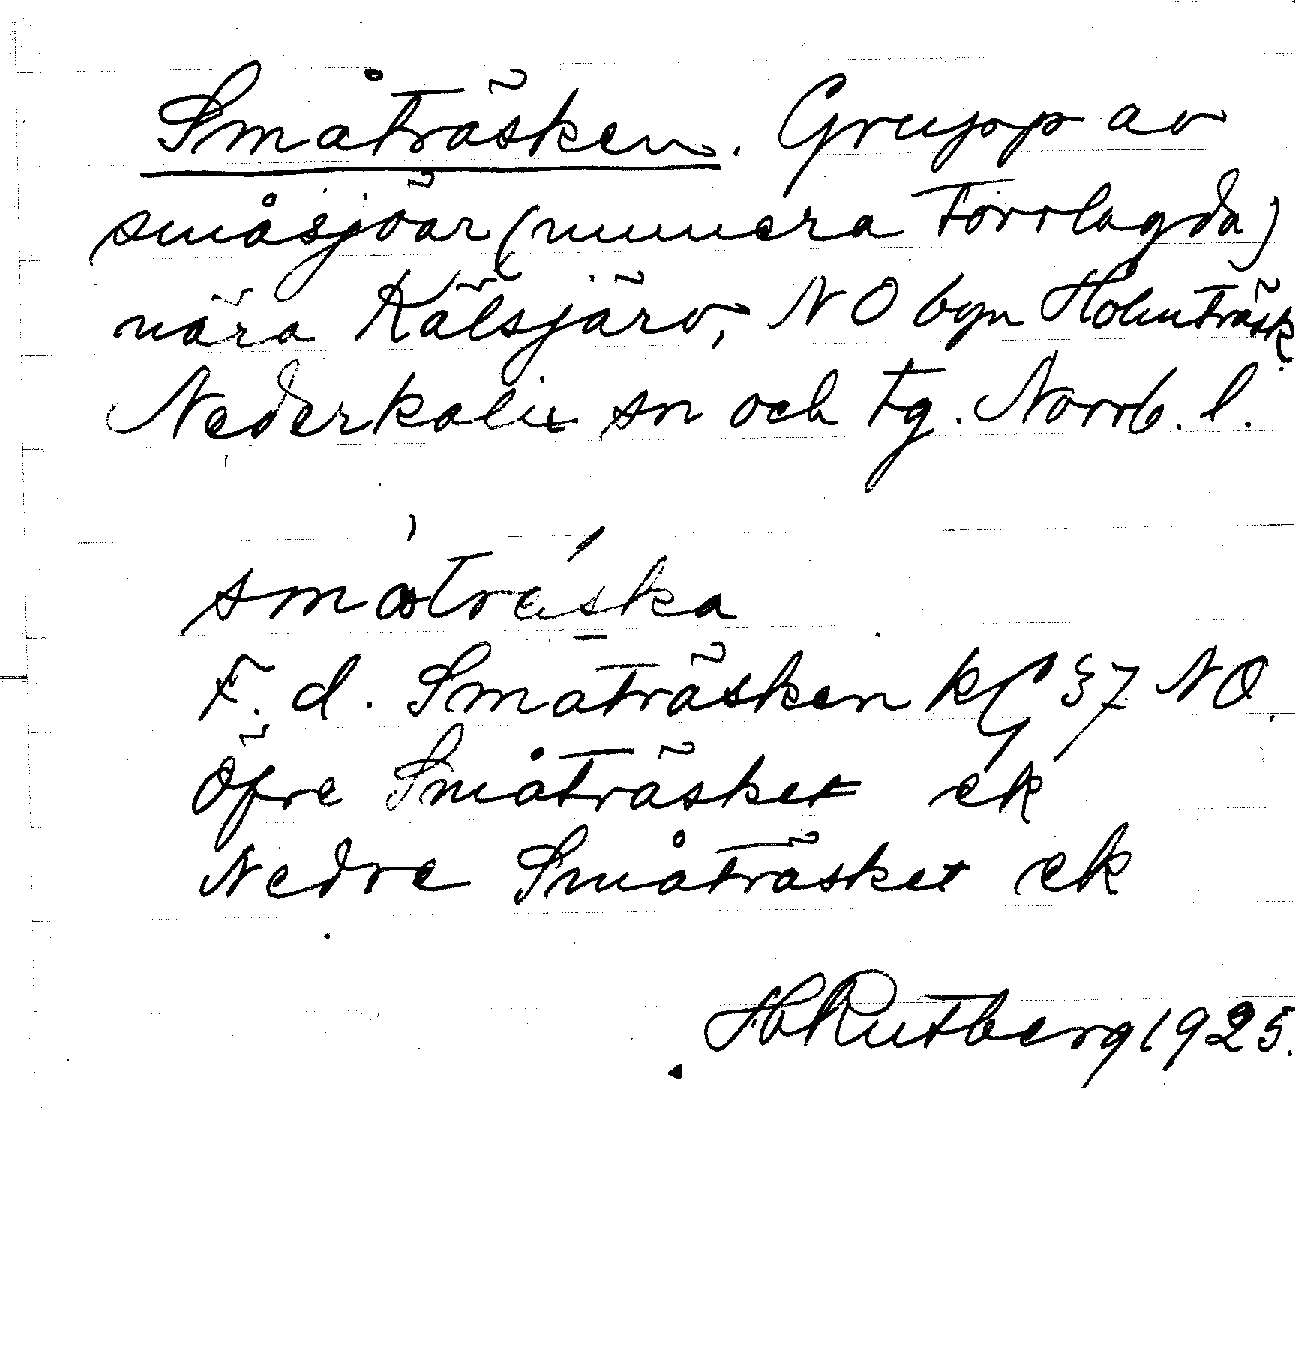 Småträsken. Grupp av
småsjöar (numera torrlagda)
nära Kälsjärv, NO byn Holmträsk
Nederkalix sn och tg. Norrb. l.
småträska
F. d. Småträsken kG 37 NO.
Öfre Småträsket ek
Nedre Småträsket ek
H Rutberg 1925.